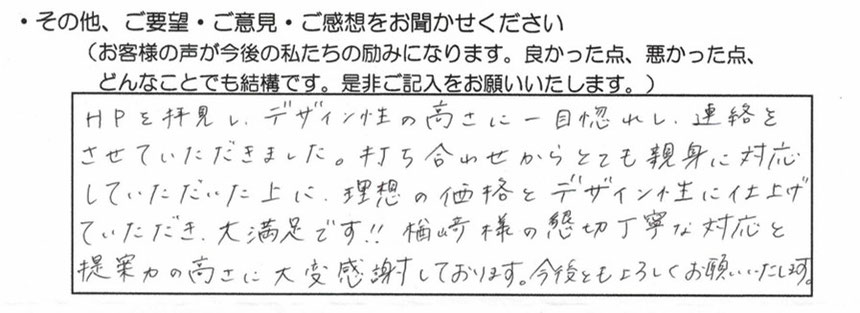 ・その他、ご要望・ご意見・ご感想をお聞かせください
（お客様の声が今後の私たちの励みになります。良かった点、悪かった点、
どんなことでも結構です。是非ご記入をお願いいたします。）
HPを拝見し、デザイン性の高さに一目惚れし、連絡を
させていただきました。打ち合わせからとても親身に対応
していただいた上に、理想の価格とデザイン性に仕上げ
ていただき、大満足です!! 楢﨑様の懇切丁寧な対応と
提案力の高さに大変感謝しております。今後ともよろしくお願いいたします。